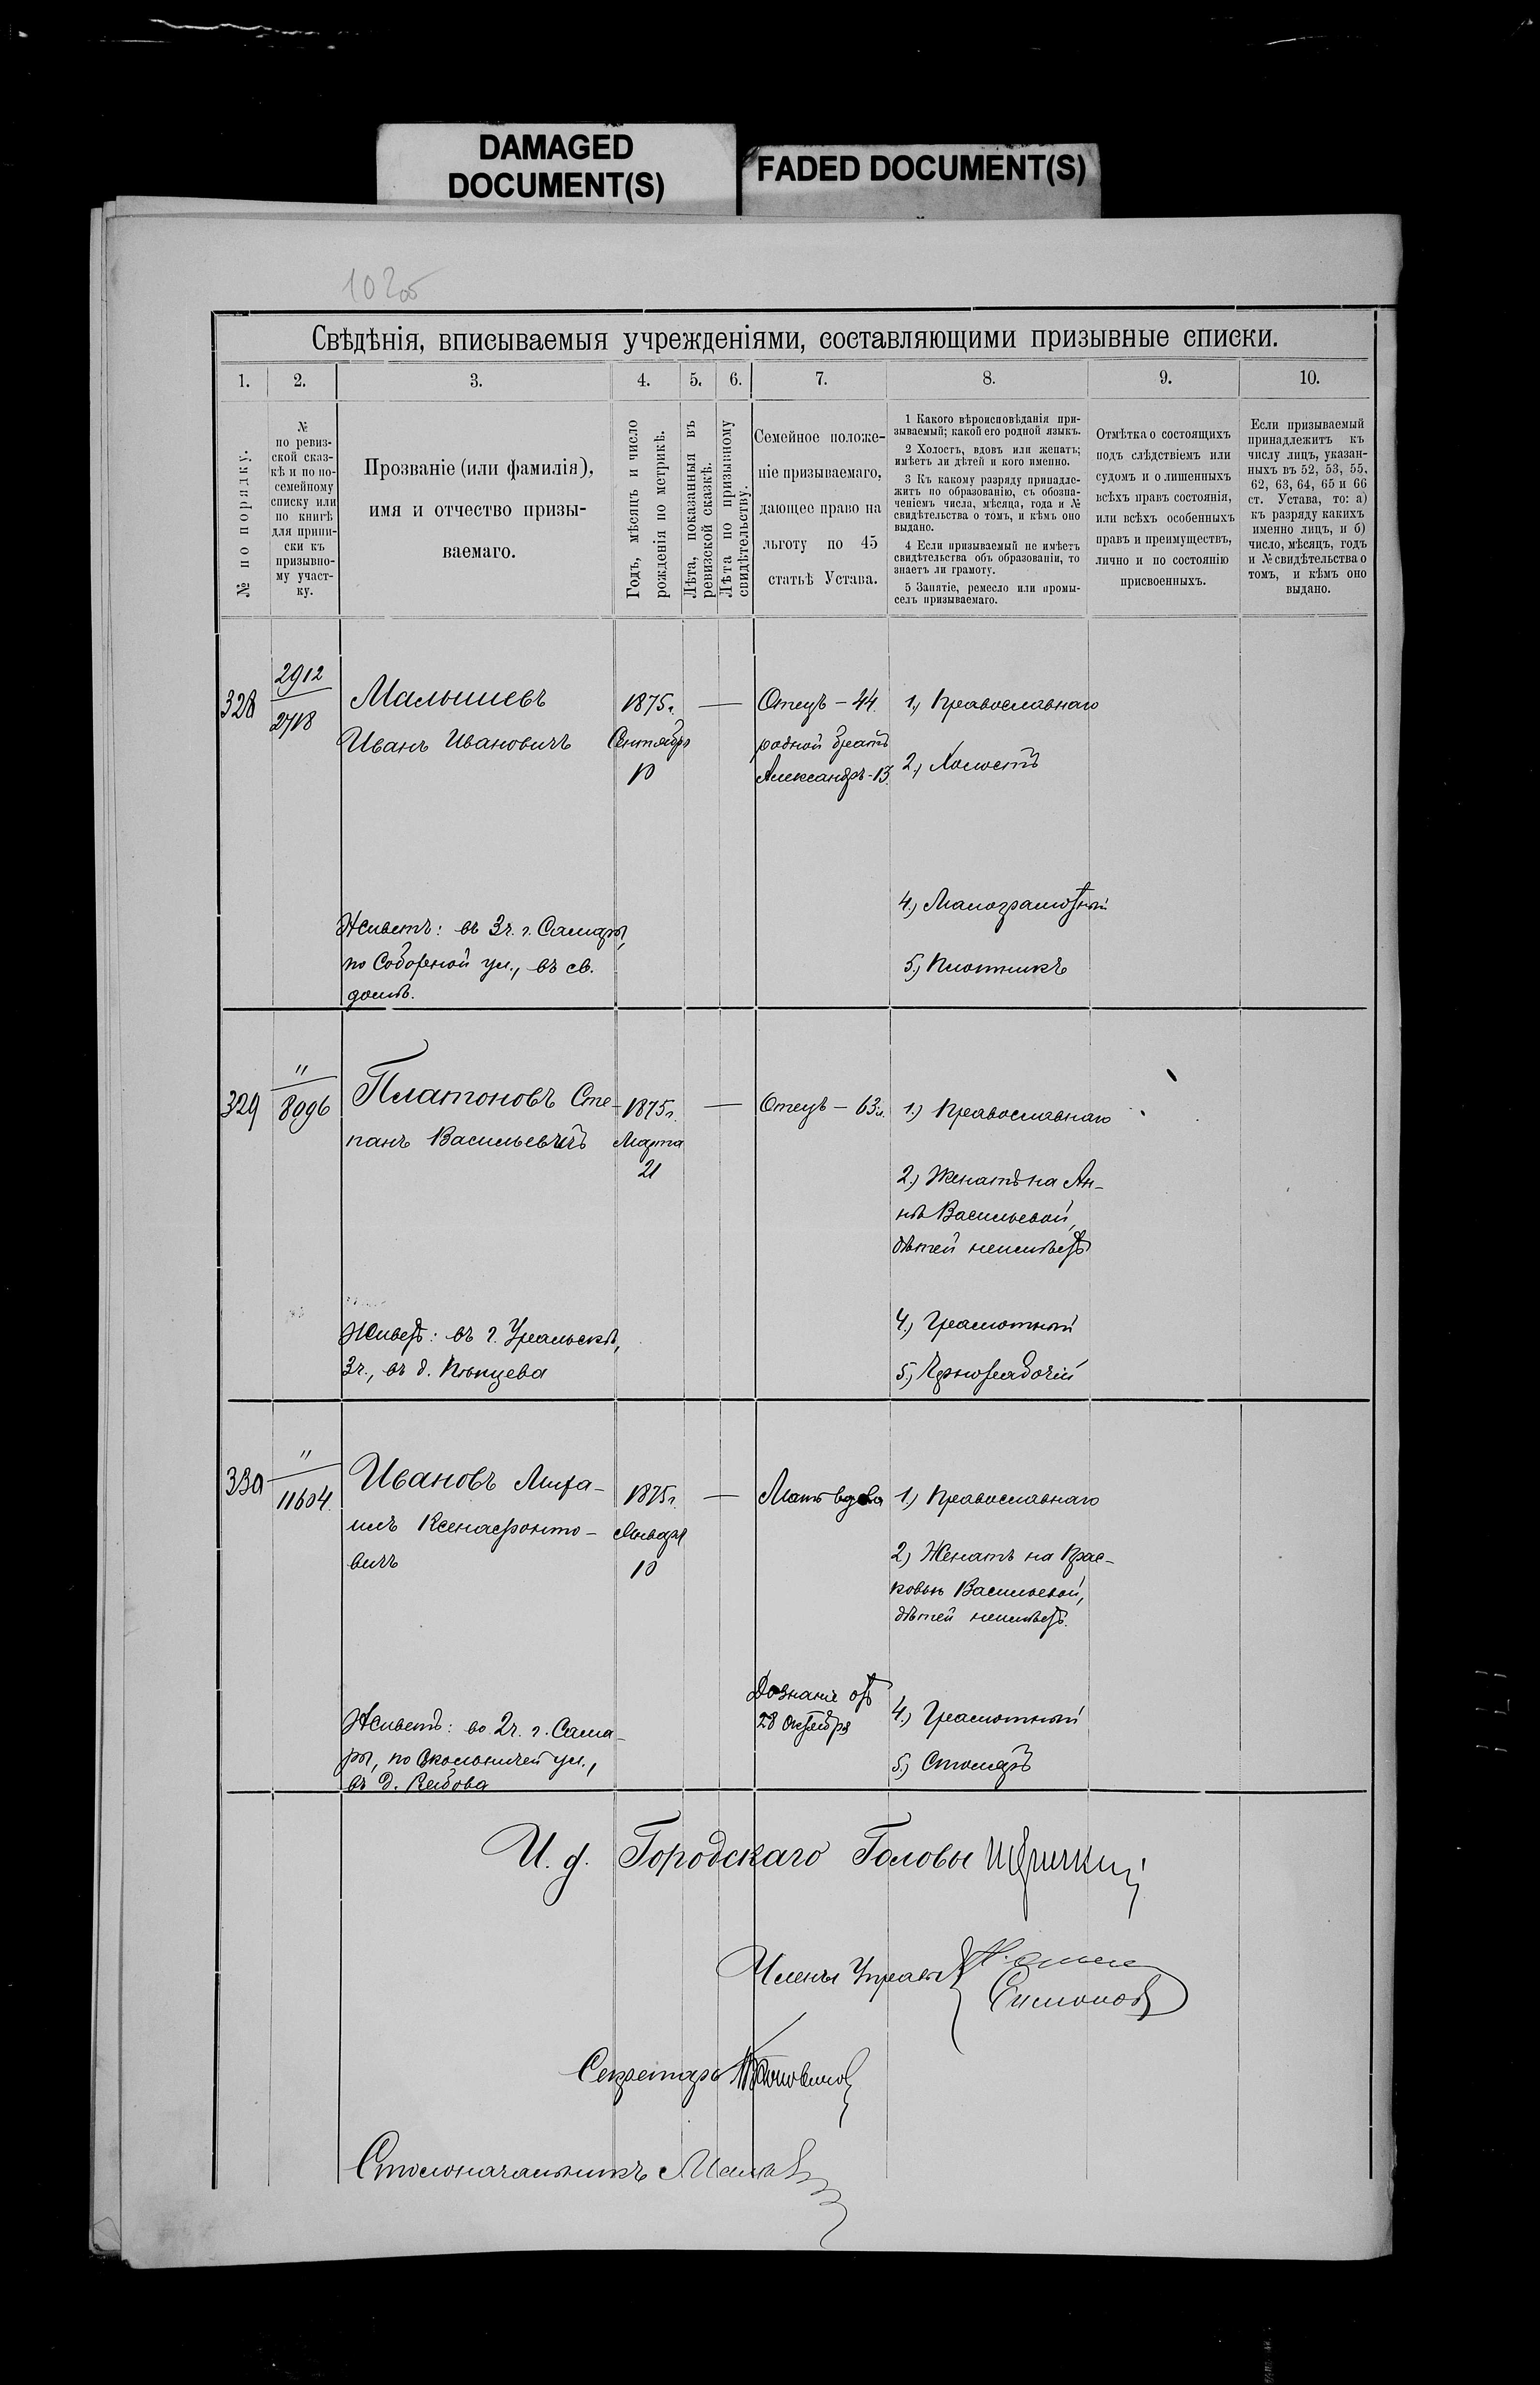 DAMAGED
DOCUMENT(S)
FADED DOCUMENT(S)
Свѣдѣнія, вписываемыя учрежденіями, составляющими призывные списки.
1. 2. 3. 4. 5. 6. 7. 8. 9. 10.
№ по порядку.
№
по ревиз-
ской сказ-
кѣ и по по-
семейному
списку или
по книгѣ
для припи-
ски къ
призывно-
му участ-
ку.
Прозваніе (или фамилія),
имя и отчество призы-
ваемаго.
Годъ, мѣсяцъ и число
рожденія по метрикѣ.
Лѣта, показанныя въ
ревизской сказкѣ.
Лѣта по призывному
свидѣтельству.
Семейное положе-
ніе призываемаго,
дающее право на
льготу по 45
статьѣ Устава.
1 Какого вѣроисповѣданія при-
зываемый; какой его родной языкъ.
2 Холостъ, вдовъ или женатъ;
имѣетъ ли дѣтей и кого именно.
3 Къ какому разряду принадле-
житъ по образованію, съ обозна-
ченіемъ числа, мѣсяца, года и №
свидѣтельства о томъ, и кѣмъ оно
выдано.
4 Если призываемый не имѣетъ
свидѣтельства объ образованіи, то
знаетъ ли грамоту.
5 Занятіе, ремесло или промы-
селъ призываемаго.
Отмѣтка о состоящихъ
подъ слѣдствіемъ или
судомъ и о лишенныхъ
всѣхъ правъ состоянія,
или всѣхъ особенныхъ
правъ и преимуществъ,
лично и по состоянію
присвоенныхъ.
Если призываемый
принадлежитъ къ
числу лицъ, указан-
ныхъ въ 52, 53, 55,
62, 63, 64, 65 и 66
ст. Устава, то: а)
къ разряду какихъ
именно лицъ, и б)
число, мѣсяцъ, годъ
и № свидѣтельства о
томъ, и кѣмъ оно
выдано.
328
2912
2718
Малышевъ
Иванъ Ивановичъ
Живетъ: въ 3ч. г. Самары,
по Соборной ул., въ св.
домѣ.
1875г.
Сентября
10
—
Отецъ – 44.
родной братъ
Александръ-13.
1.) Православнаго
2.) Холостъ
4.) Малограмотный
5.) Плотникъ
329
"
8096
Платоновъ Сте-
панъ Васильевичъ
Живетъ: въ г. Уральскѣ,
3ч., въ д.
1875г.
Марта
21
—
Отецъ – 63л.
1.) Православнаго
2.) Женатъ на Ан-
нѣ Васильевой,
дѣтей неимѣетъ
4.) Грамотный
5.) Чернорабочій
330
"
11604.
Ивановъ Миха-
илъ Ксенофонто-
вичъ
Живетъ: во 2ч. г. Сама-
ры, по ул.,
въ д.
1875г.
Января
10
—
Мать вдова
Дознаніе отъ
28 октября
1.) Православнаго
2.) Женатъ на Прас-
ковьѣ Васильевой,
дѣтей неимѣетъ.
4.) Грамотный
5.) Столяръ
И. д. Городскаго Головы
Члены Управы
Симоновъ
Секретарь
Столоначальникъ